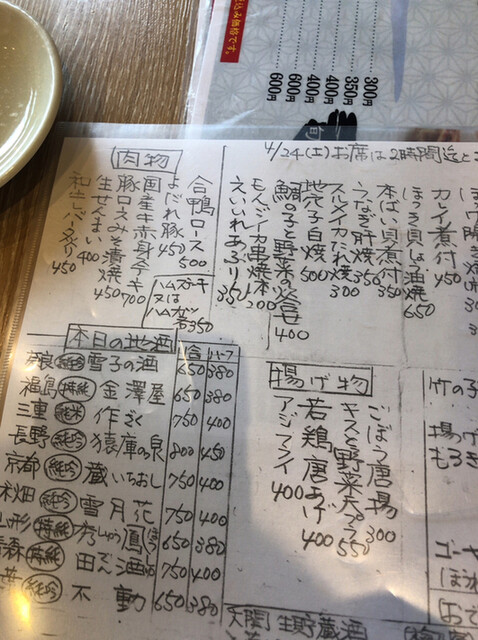 込み価格です。
300円
350円
400円
400円
600円
600円
旬
4/24(土)お席は2時間迄と
カレイ煮付 450
ほっき貝しょうゆ焼 650
本ばい貝煮付 350
うなぎ肝焼 350
スルメイカたれ焼 300
地穴子白焼 500
鯛の子と野菜の炊合せ 400
もんごうイカ串焼 1本 200
えいひれあぶり 350
肉物
合鴨ロース 500
よだれ豚 450
国産牛赤身ステーキ 700
豚ロースみそ漬焼 450
生せんまい 400
和牛レバー炙り 450
ハムステーキ
又は
ハムカツ
各350
本日の地酒
一合 ハーフ
奈良 純吟 雪子の酒 650 380
福島 特純 金澤屋 650 380
三重 純米 作 ざく 750 400
長野 純吟 猿庫の泉 800 450
京都 純吟 蔵いちおし 750 400
秋田 純吟 雪月花 750 400
山形 特純 秀鳳 しゅうほう 650 380
青森 特純 田酒 でんしゅ 750 400
千葉 純吟 不動 650 380
揚げ物
ごぼう唐揚 300
キスと野菜天プラ 550
若鶏唐あげ 400
アジフライ 400
竹の子
揚げ
もろき
ゴーヤ
ほれ
おで
大関 生貯蔵酒